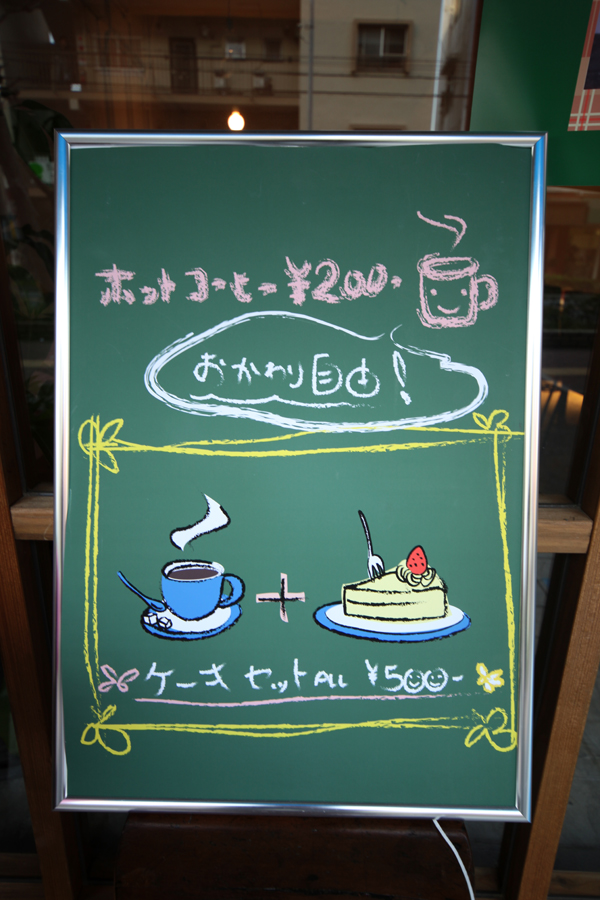 ホットコーヒー ¥200-
おかわり自由!
+
ケーキセット ALL ¥500-